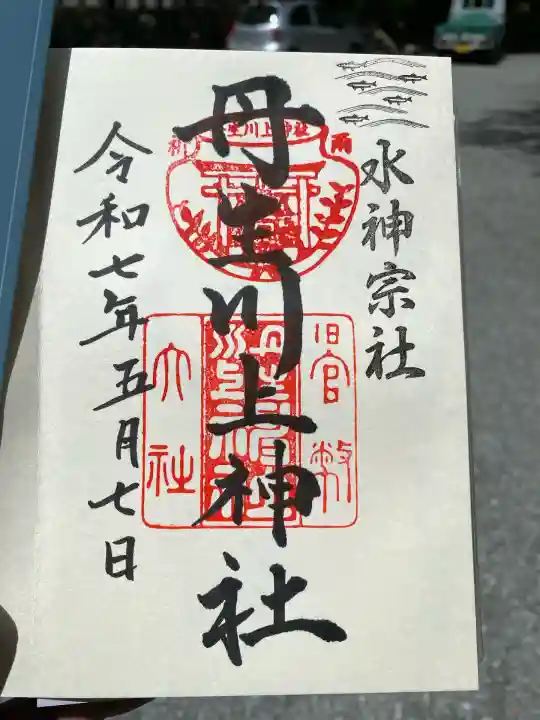 水神宗社
丹生川上神社
生川上神社
雨
旧官幣
大社
令和七年五月七日